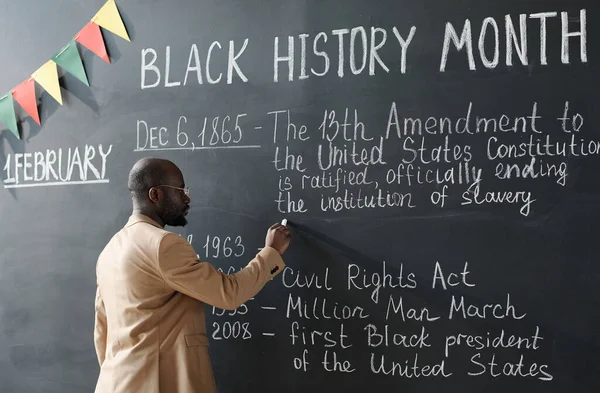 BLACK HISTORY MONTH
Dec 6, 1865 - The 13th Amendment to
the United States Constitution
is ratified, officially ending
the institution of slavery
1 FEBRUARY
1963 -
Civil Rights Act
- Million Man March
2008 - first Black president
of the United States.